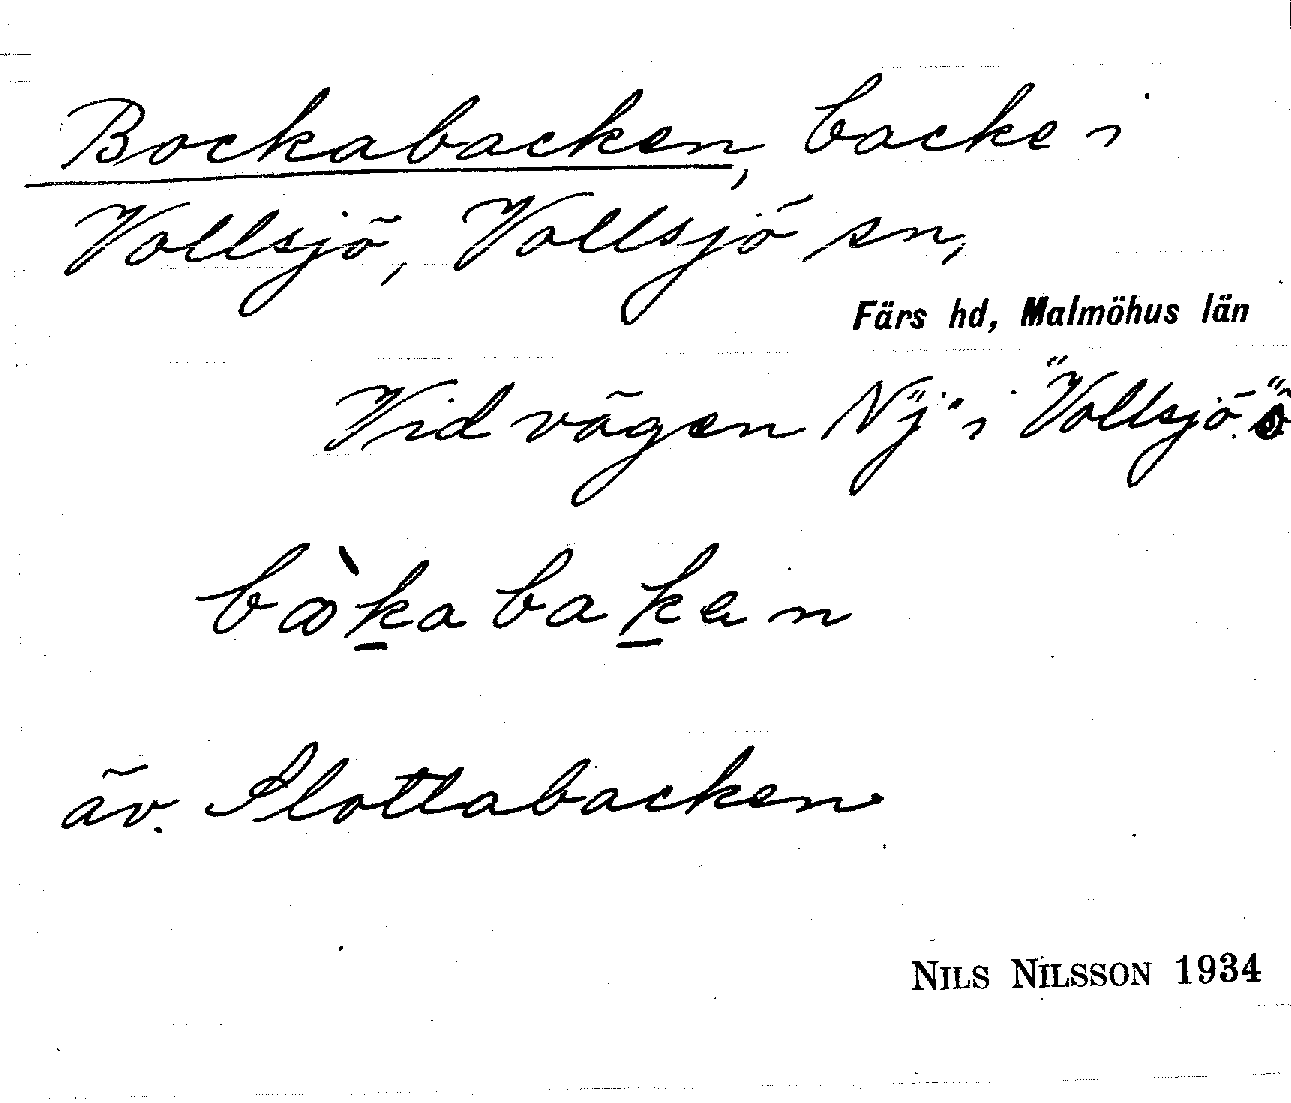 Bockabacken, backe i
Vollsjö, Vollsjö sn,
Färs hd, Malmöhus län
Vid vägen N "j" i "Vollsjö"
bꝏ̀ka bakan
äv. Slottabacken
NILS NILSSON 1934